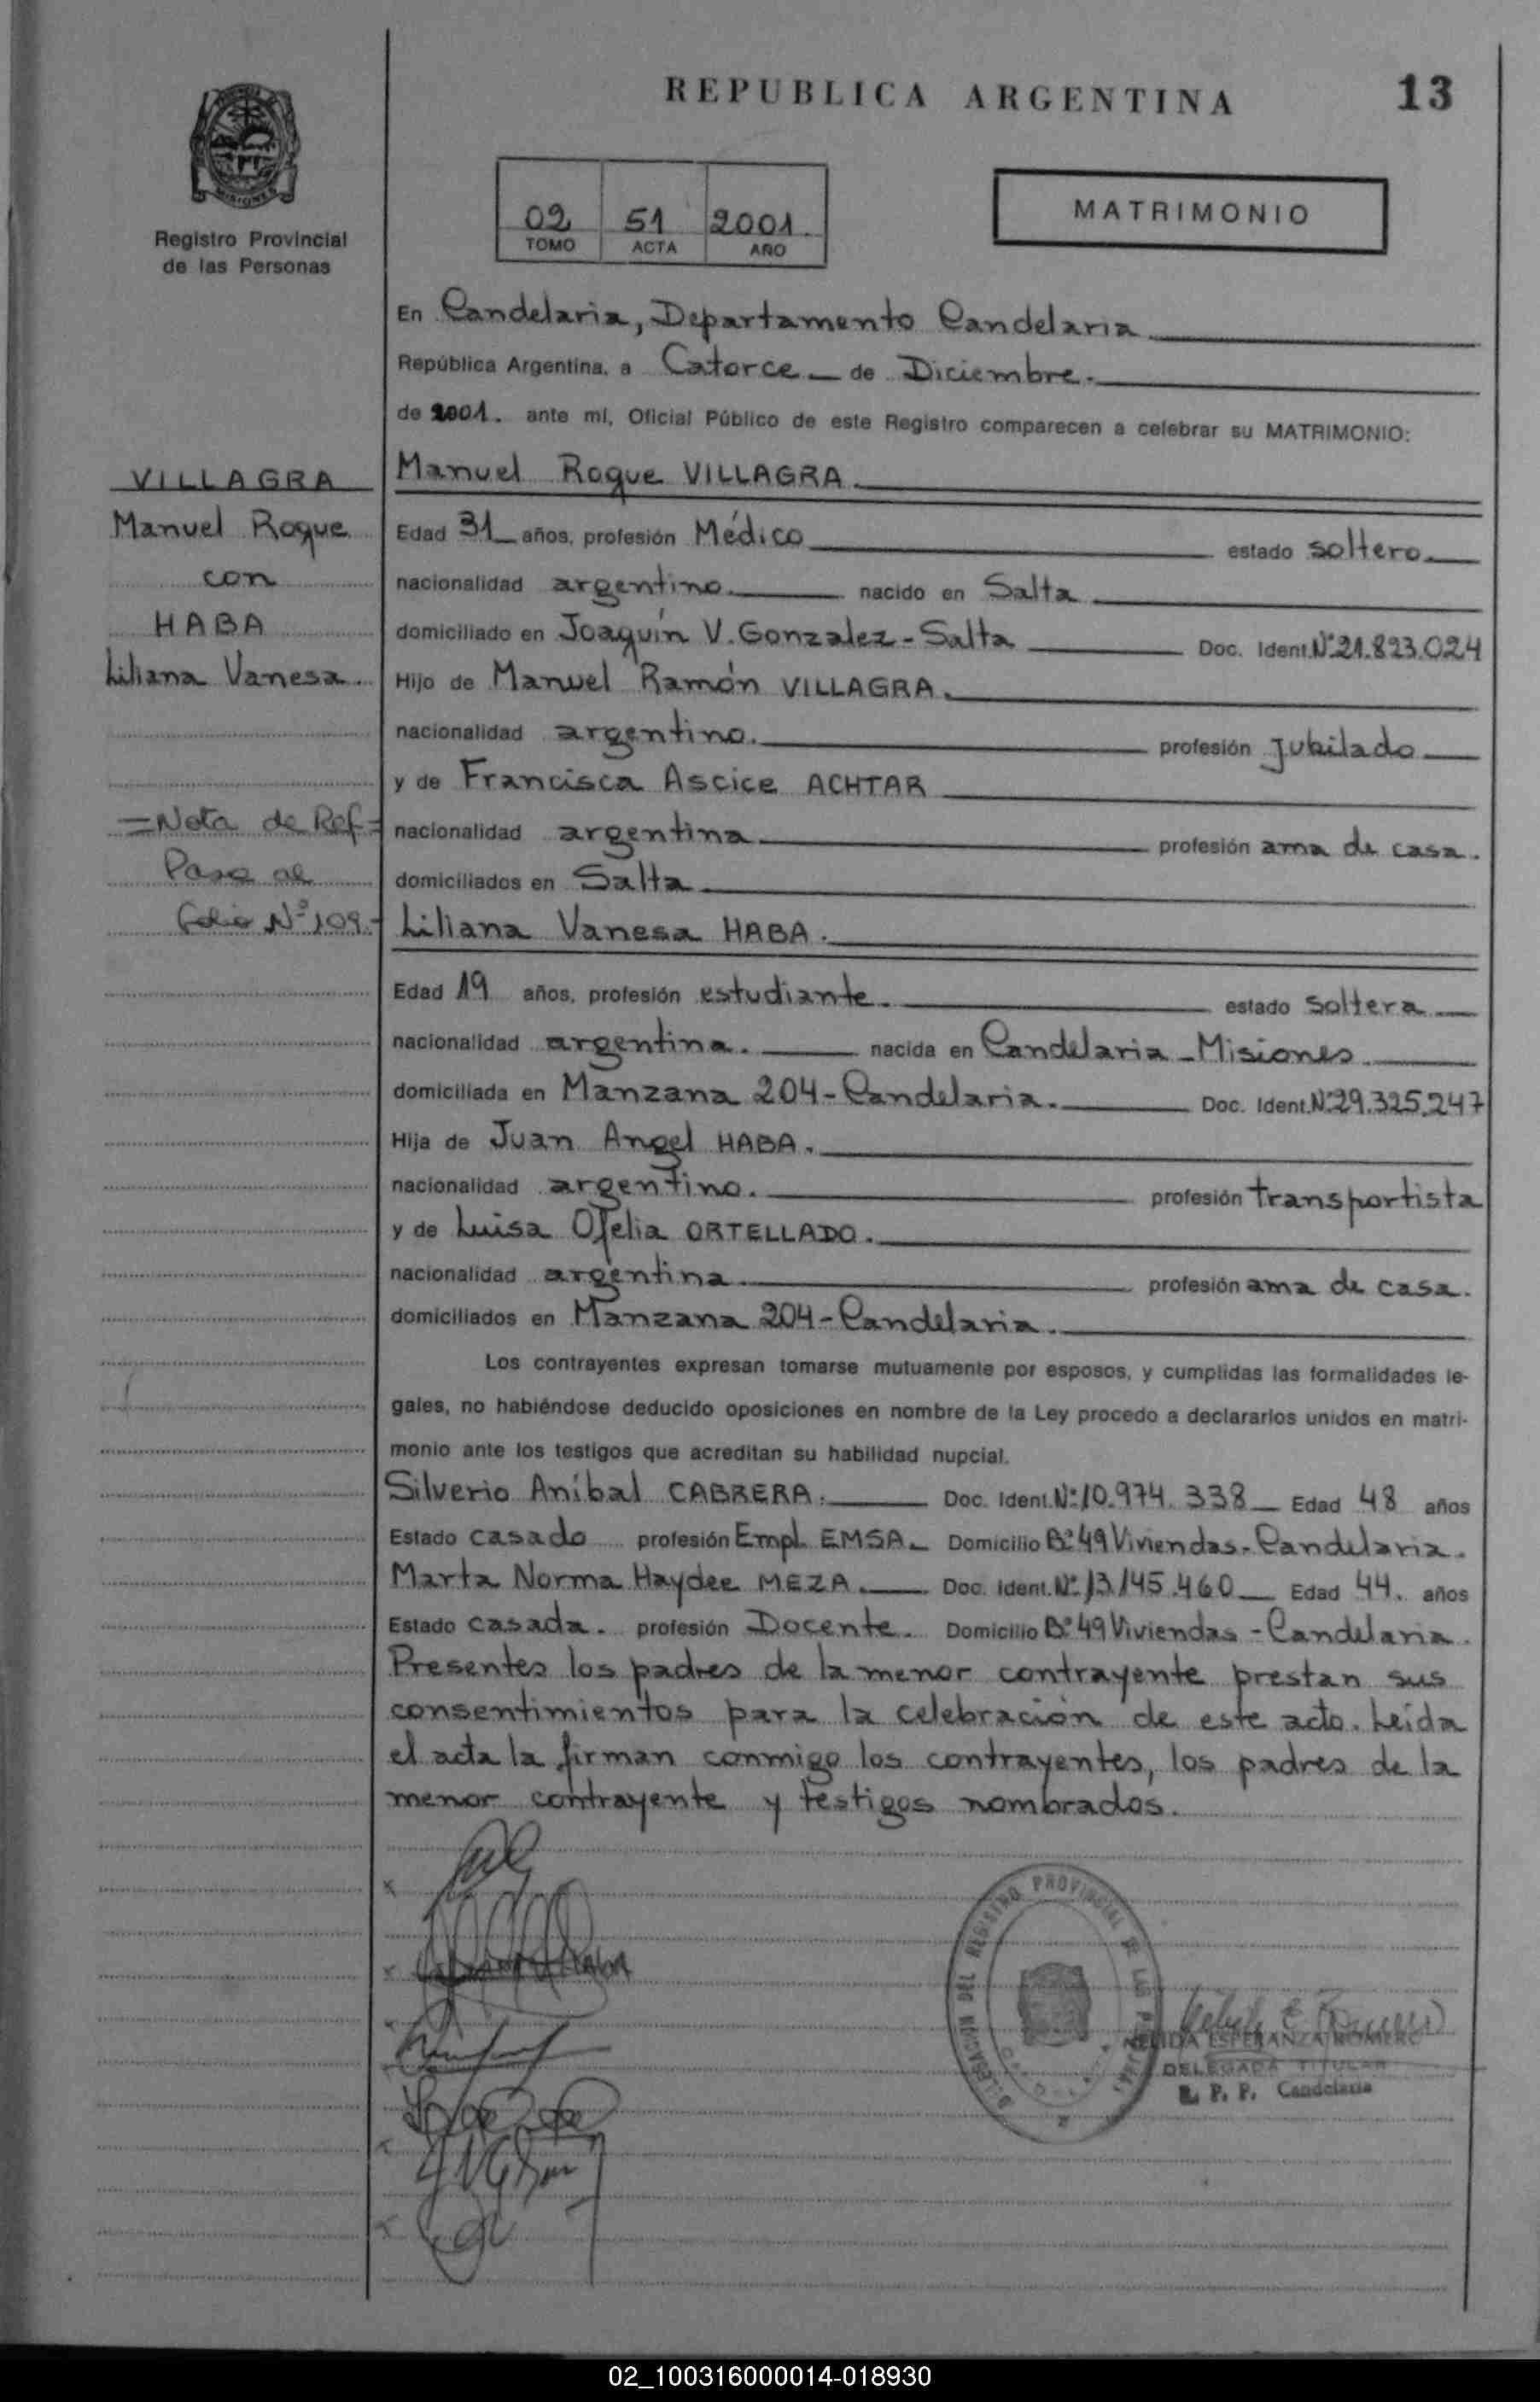 REPUBLICA ARGENTINA
13
Registro Provincial
de las Personas
02 51 2001.
TOMO ACTA AÑO
MATRIMONIO
En Candelaria, Departamento Candelaria
República Argentina, a Catorce de Diciembre.
de 2001. ante mí, Oficial Público de este Registro comparecen a celebrar su MATRIMONIO:
VILLAGRA
Manuel Roque
con
HABA
Liliana Vanesa.
=Nota de Ref=
Pase al
Folio Nº 109.-
Manuel Roque VILLAGRA.
Edad 31 años, profesión Médico estado soltero
nacionalidad argentino. nacido en Salta
domiciliado en Joaquín V. Gonzalez-Salta Doc. Ident. Nº21.823.024
Hijo de Manuel Ramón VILLAGRA.
nacionalidad argentino. profesión jubilado
y de Francisca Ascice ACHTAR
nacionalidad argentina profesión ama de casa.
domiciliados en Salta
Liliana Vanesa HABA.
Edad 19 años, profesión estudiante. estado soltera
nacionalidad argentina. nacida en Candelaria-Misiones
domiciliada en Manzana 204-Candelaria. Doc. Ident. Nº29.325.247
Hija de Juan Angel HABA.
nacionalidad argentino. profesión transportista
y de Luisa Ofelia ORTELLADO.
nacionalidad argentina profesión ama de casa.
domiciliados en Manzana 204-Candelaria.
Los contrayentes expresan tomarse mutuamente por esposos, y cumplidas las formalidades le-
gales, no habiéndose deducido oposiciones en nombre de la Ley procedo a declararlos unidos en matri-
monio ante los testigos que acreditan su habilidad nupcial.
Silverio Aníbal CABRERA. Doc. Ident. Nº10.974.338 Edad 48 años
Estado casado profesión Empl. EMSA Domicilio Bº49 Viviendas-Candelaria.
Marta Norma Haydee MEZA. Doc. Ident. Nº13.145.460 Edad 44. años
Estado casada. profesión Docente. Domicilio Bº49 Viviendas-Candelaria.
Presentes los padres de la menor contrayente prestan sus
consentimientos para la celebración de este acto. Leída
el acta la firman conmigo los contrayentes, los padres de la
menor contrayente y testigos nombrados.
DELEGACION DEL REGISTRO PROVINCIAL DE LAS
NELIDA ESPERANZA ROMERO
DELEGADA TITULAR
R. P. P. Candelaria
02_100316000014-018930